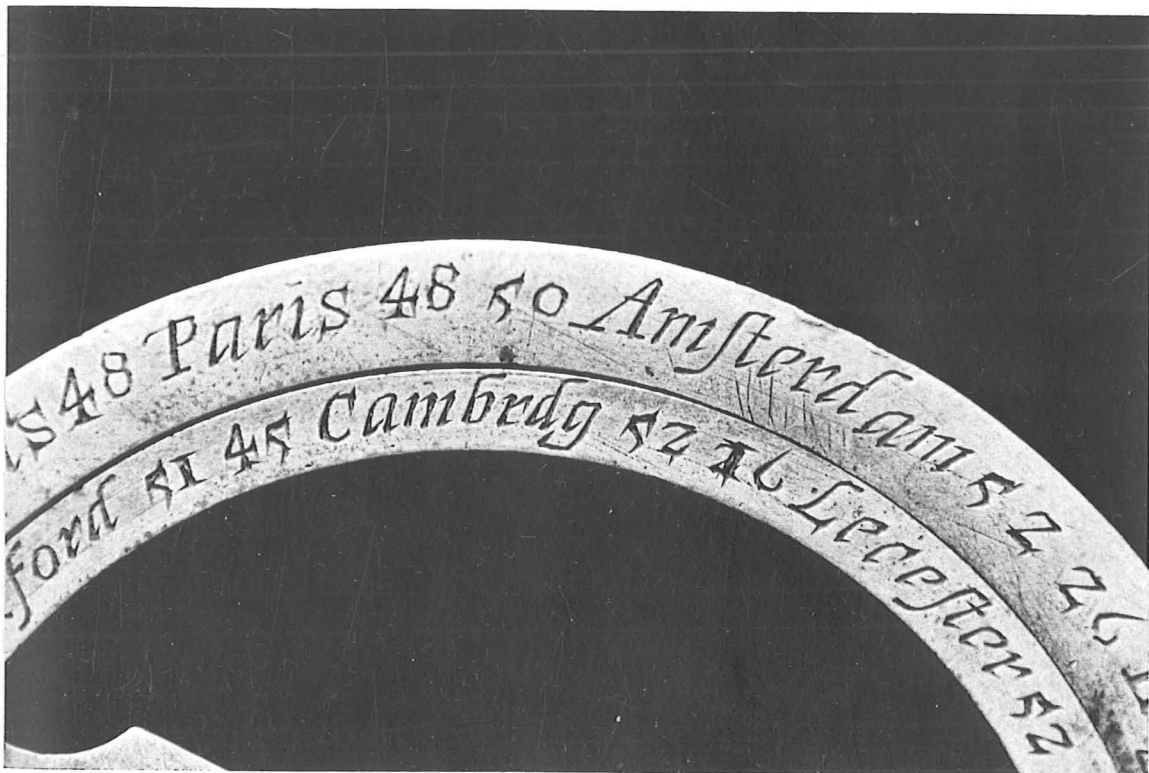 s 48 Paris 48 50 Amſterdam 52 26
ford 51 45 Cambrdg 52 16 Leceſter 52